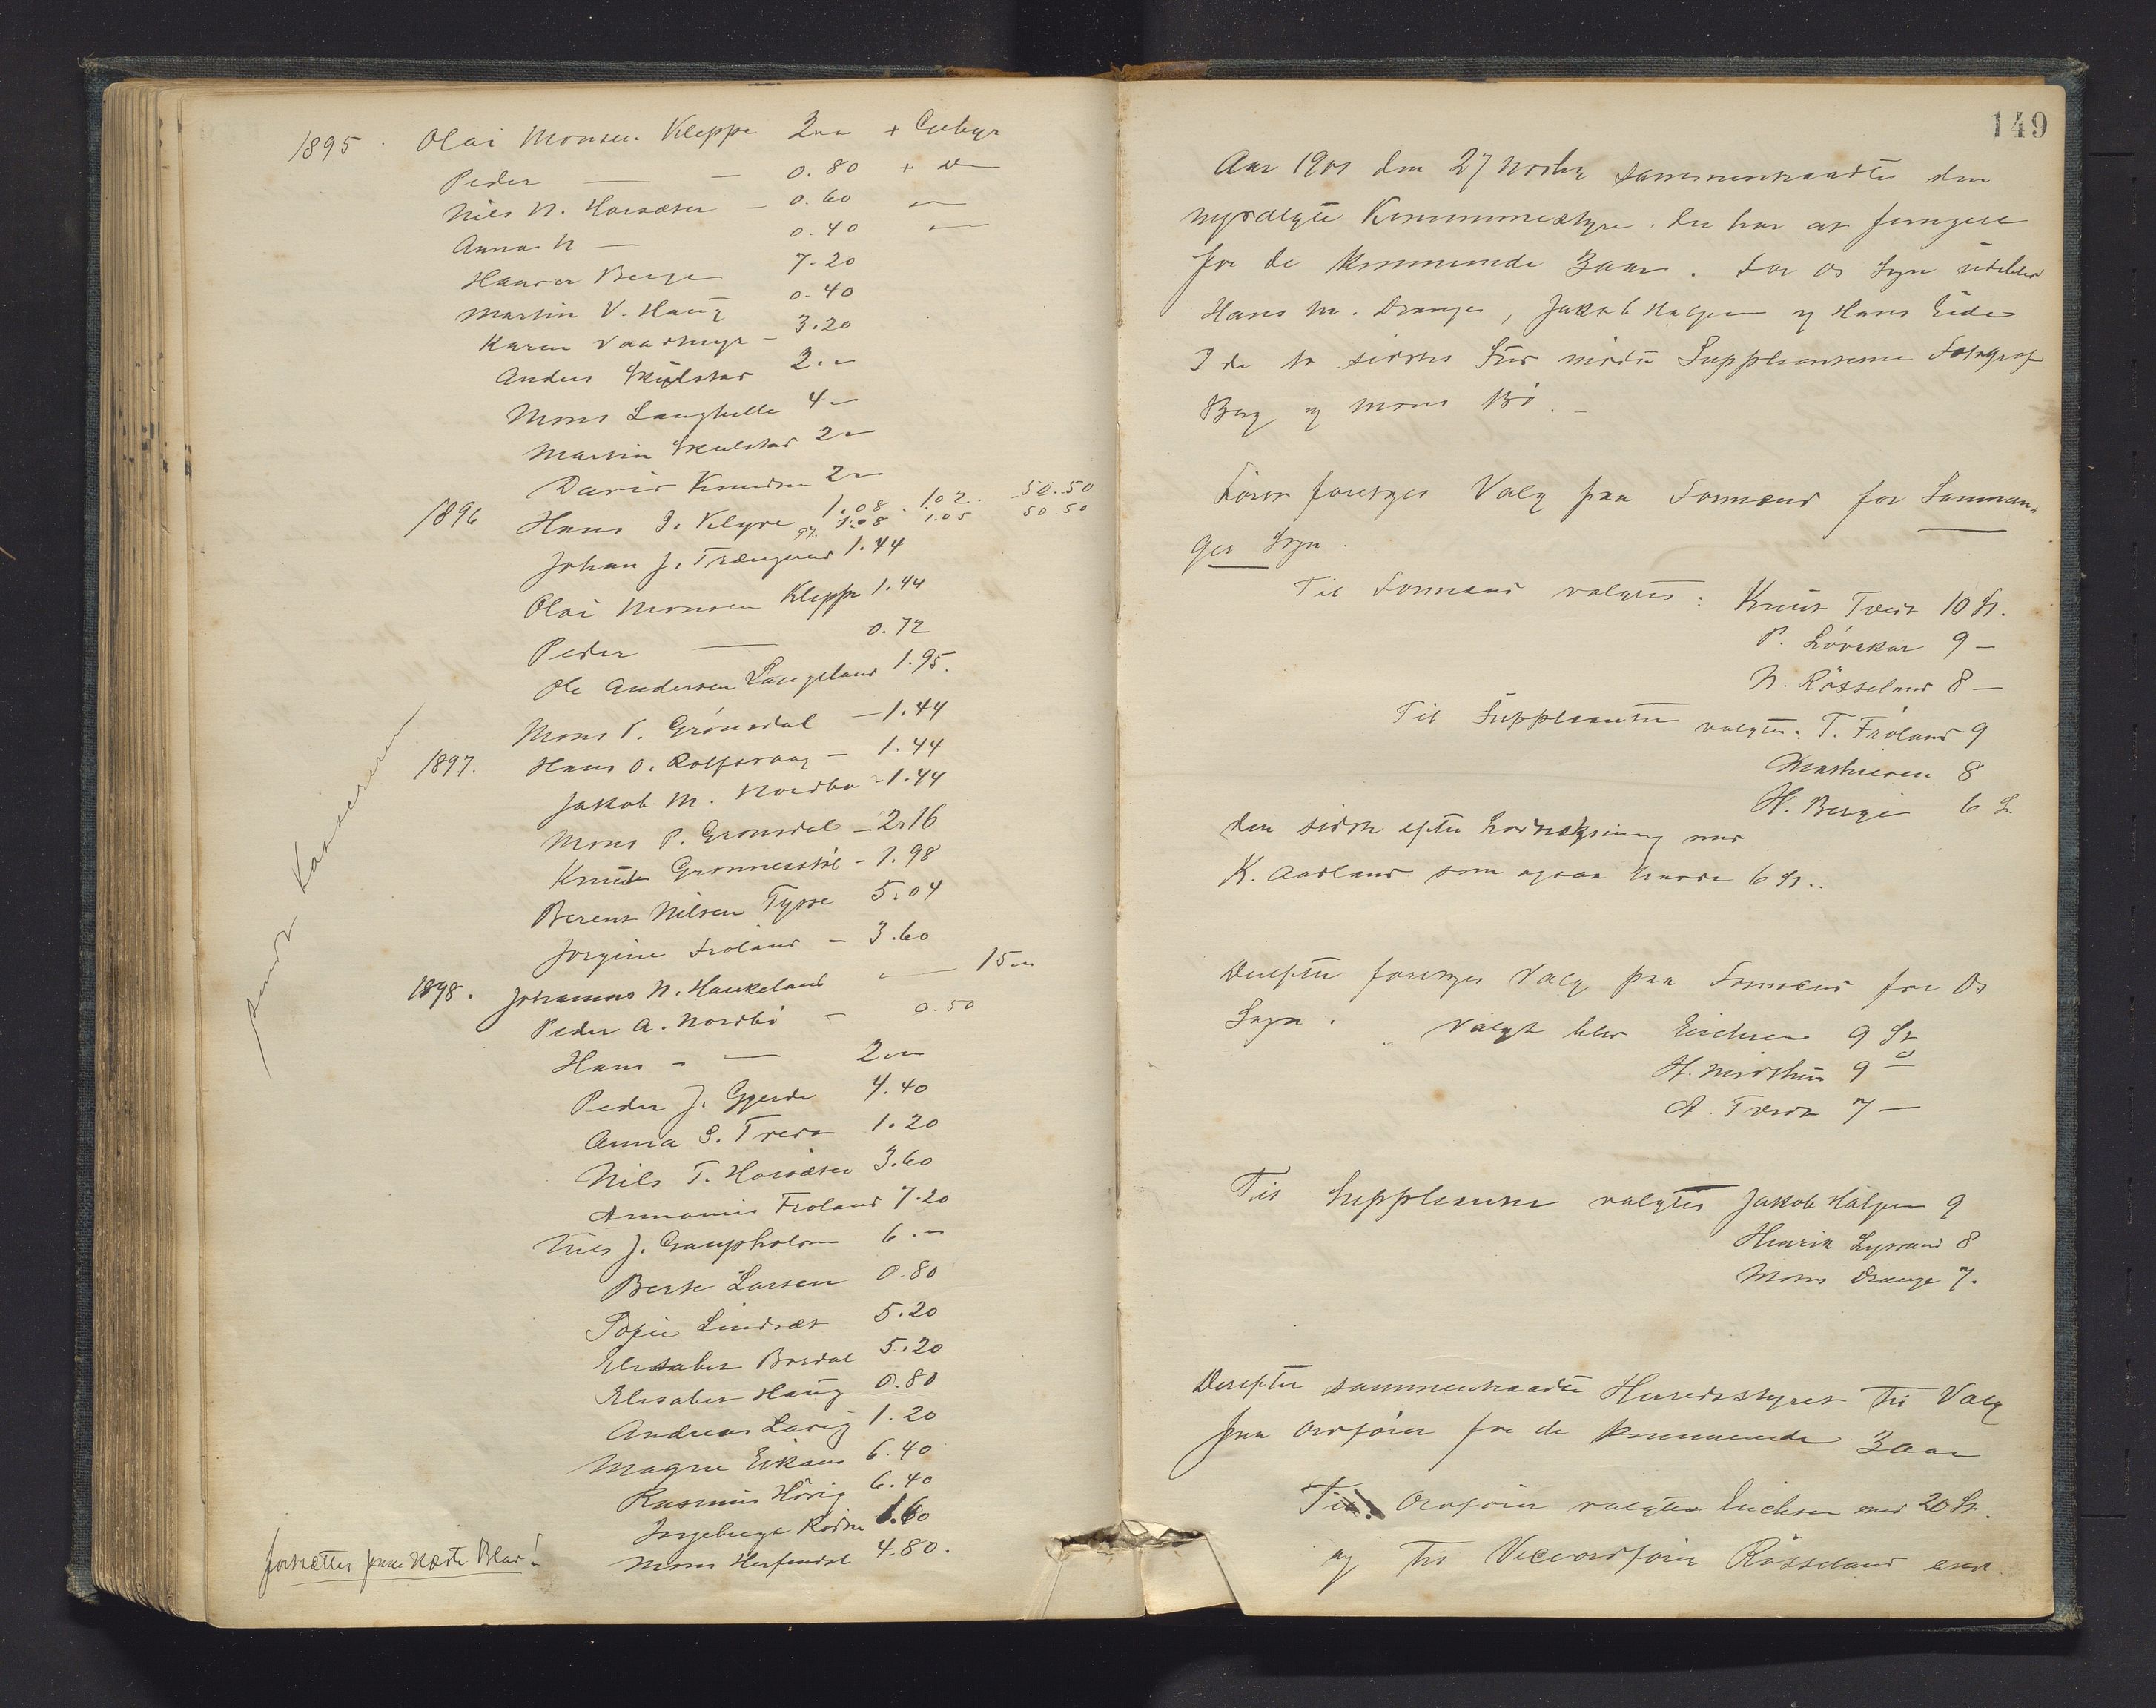 1895. Olai Monsen Kleppe 2 " + Gebyr
Peder — — 0.80 + Do
Nils N. Horsæter — 0.60 —
Anna N — 0.40 —
Berge 7.20
Martin V. Haug 0.40
Karen 3.20
Anders Skulstad 2."
Mons Langhelle 4 "
Martin Skulstad 2 "
David Knudsen 2 "
1896 Hans J. 1.08. 1.02. 50.50
1.08 1.05 50.50
Johan J. Trængereid 1.44
Olai Monsen Kleppe 1.44
Peder — 0.72
Ole Andersen Langeland 1.95.
Mons P. Grönsdal — 1.44
1897. Hans O. Rolfsvaag — 1.44
Jakob M. Nordbø - 1.44
Mons P. Gronsdal — 2.16
Knut 1.98
Berent Nilsen Tysse 5.04
Jorgine Froland — 3.60
1898. Johannes N. Haukeland — 15 "
Peder A. Nordbö — 0.50
Hans - — 2 "
Peder J. Gjerde 4.40
Anna S. Tveit 1.20
Nils T. Horsæter 3.60
Annanias Froland 7.20
Nils J. Gaupholm 6."
Berte Larsen 0.80
Sofie Lindsæt 5.20
Elisabet 5.20
Elisabet Haug 0.80
Andreas 1.20
Magne Eikans 6.40
Rasmus 6.40
Ingeborg 1.60
Mons Herfindal 4.80.
sendt Kassereren
fortsættes paa næste Blad!
149
Aar 1901 den 27 Novbr sammentraadte den
nyvalgte Kommunestyre der har at fungere
for de kommende 3 aar. For Os Sogn udeblev
Hans M. Drange, Jakob Haljem og Hans Eide
I de to sidstes Sted mödte Suppleanterne Fotograf
Berg og Mons Bö. —
Först foretoges Valg paa Formænd for Samnan-
ger Sogn.
Til Formænd valgtes: Knut Tveit 10 St.
P. Lövskar 9 —
N. Rösseland 8 —
Til Suppleanter valgtes: T. Fröland 9
Mathiesen 8
H. Berge 6 St
den sidste efter Lodtrækning med
K. Aadland som ogsaa havde 6 St..
Derefter foretoges Valg paa Formænd for Os
Sogn. Valgt blev Erichsen 9 St
H. Midthun 9 —
A. Tveit 7 —
Til Suppleanter valgtes Jakob Haljem 9
Henrik Lyssand 8
Mons Drange 7.
Derefter sammentraadte Herredsstyret til Valg
paa Ordförer for de kommende 3 aar
Til Ordförer valgtes Erichsen med 20 St.
og til Viceordförer Rösseland